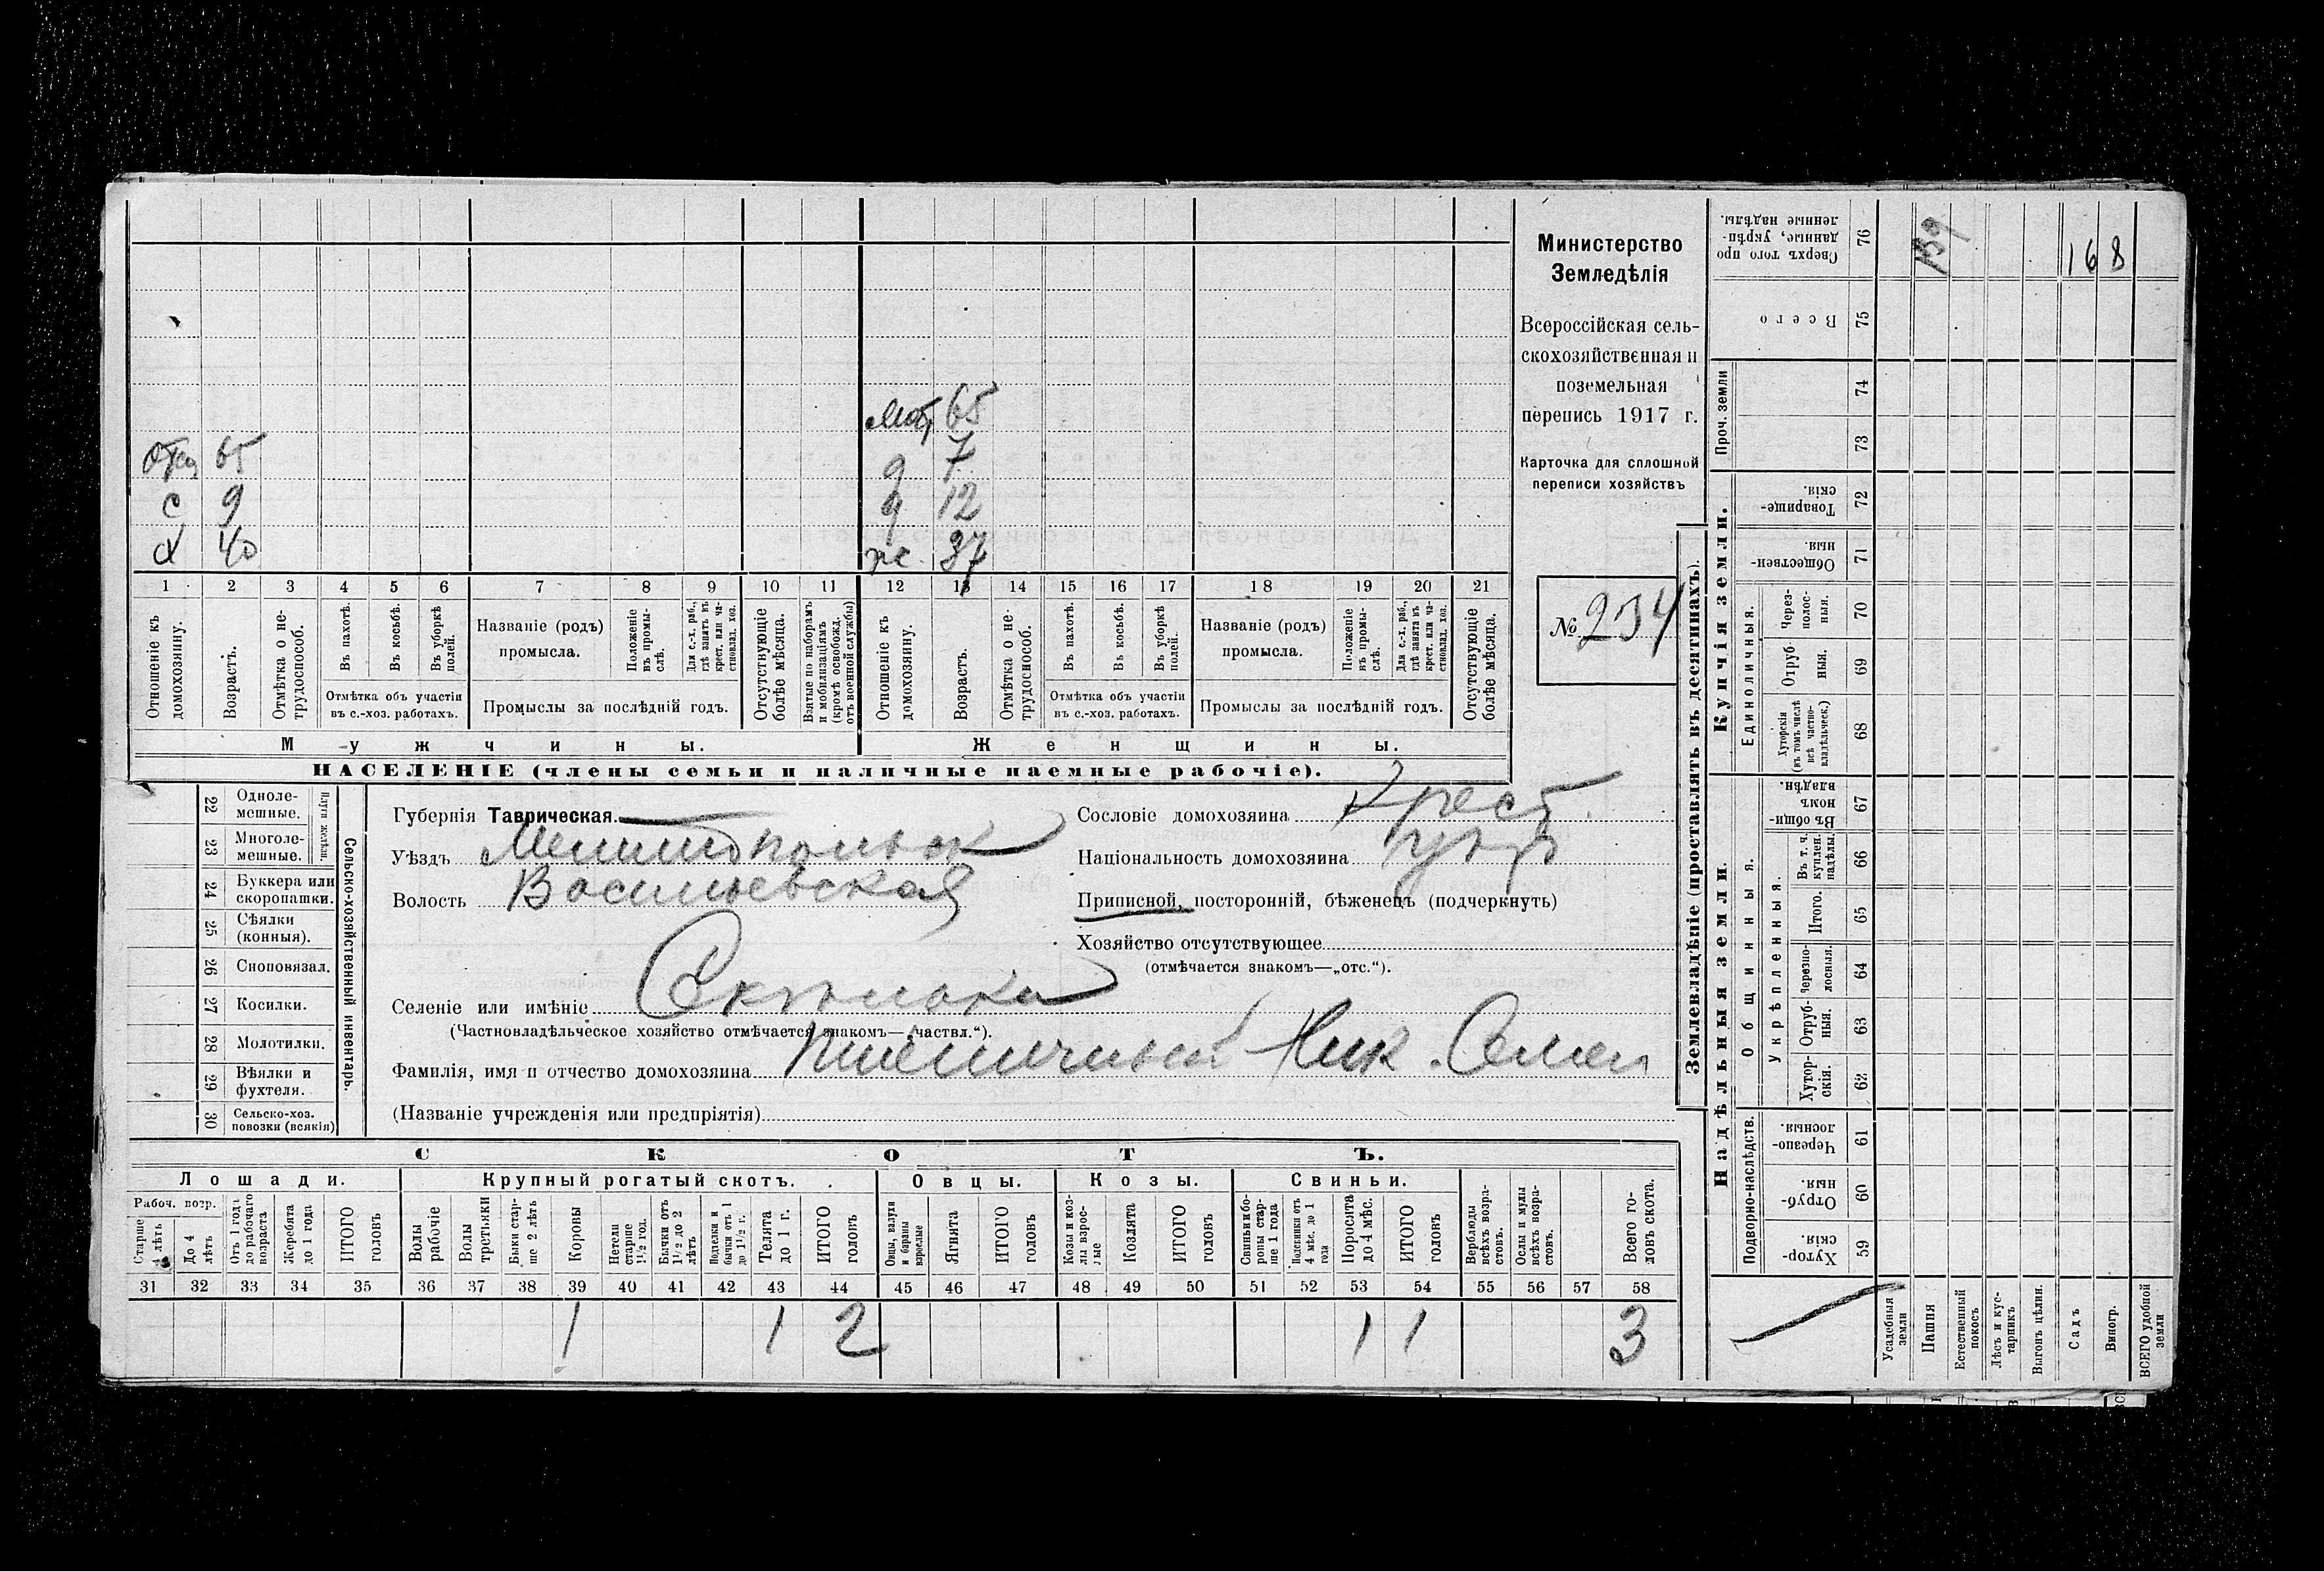 Мат. 65
Отец 65
д 7
с 9
д 12
х 40
ж. 37
1 2 3 4 5 6 7 8 9 10 11 12 13 14 15 16 17 18 19 20 21
Отношеніе къ домохозяину.
Возрастъ.
Отмѣтка о нетрудоспособ.
Въ пахотѣ.
Въ косьбѣ.
Въ уборкѣ полей.
Отмѣтка объ участіи въ с.-хоз. работахъ.
Названіе (родъ) промысла.
Положеніе въ промыслѣ.
Для с.-х. раб., гдѣ занятъ въ крест. или частновлад. хоз.
Промыслы за послѣдній годъ.
Отсутствующіе болѣе мѣсяца.
Взятые по наборамъ и мобилизаціямъ (кромѣ освобожд. отъ военной службы)
Отношеніе къ домохозяину.
Возрастъ.
Отмѣтка о нетрудоспособ.
Въ пахотѣ.
Въ косьбѣ.
Въ уборкѣ полей.
Отмѣтка объ участіи въ с.-хоз. работахъ.
Названіе (родъ) промысла.
Положеніе въ промыслѣ.
Для с.-х. раб., гдѣ занята въ крест. или частновлад. хоз.
Промыслы за послѣдній годъ.
Отсутствующіе болѣе мѣсяца.
Мужчины.
Женщины.
НАСЕЛЕНІЕ (члены семьи и наличные наемные рабочіе).
Министерство
Земледѣлія
Всероссійская сель-
скохозяйственная и
поземельная
перепись 1917 г.
Карточка для сплошной
переписи хозяйствъ
№ 234
22 Однолемешные.
23 Многолемешные.
Плуги желѣзн.
24 Буккера или скоропашки.
25 Сѣялки (конныя).
26 Сноповязал.
27 Косилки.
28 Молотилки.
29 Вѣялки и фухтеля.
30 Сельско-хоз. повозки (всякія)
Сельско-хозяйственный инвентарь.
Губернія Таврическая.
Уѣздъ Мелитопольск
Волость Васильевская
Селеніе или имѣніе Скельки
(Частновладѣльческое хозяйство отмѣчается знакомъ—„частвл.“).
Фамилія, имя и отчество домохозяина Пшеничный Ник. Семен
(Названіе учрежденія или предпріятія)
Сословіе домохозяина Крест.
Національность домохозяина
Приписной, посторонній, бѣженецъ (подчеркнуть)
Хозяйство отсутствующее
(отмѣчается знакомъ—„отс.“).
СКОТЪ.
Лошади.
Крупный рогатый скотъ.
Овцы.
Козы.
Свиньи.
Рабоч. возр.
Старше 4 лѣтъ
До 4 лѣтъ
Отъ 1 года до рабочаго возраста
Жеребята до 1 года
ИТОГО головъ
Волы рабочіе
Волы третьяки
Быки старше 2 лѣтъ
Коровы
Нетели старше 1½ год.
Бычки отъ 1½ до 2 лѣтъ
Подтелки и бычки отъ 1 до 1½ г.
Телята до 1 г.
ИТОГО головъ
Овцы, валухи и бараны взрослые
Ягнята
ИТОГО головъ
Козы и козлы взрослые
Козлята
ИТОГО головъ
Свиньи и боровы старше 1 года
Подсвинки отъ 4 мѣс. до 1 года
Поросята до 4 мѣс.
ИТОГО головъ
Верблюды всѣхъ возрастовъ.
Ослы и мулы всѣхъ возрастовъ.
Всего головъ скота.
31 32 33 34 35 36 37 38 39 40 41 42 43 44 45 46 47 48 49 50 51 52 53 54 55 56 57 58
1 1 2 1 1 3
Землевладѣніе (проставлять въ десятинахъ).
Купчія земли.
Надѣльныя земли.
Сверхъ того проданные, укрѣпленные надѣлы. 76
Всего 75
Проч. земли
74
73
Товарищескія. 72
Общественныя. 71
Единоличныя.
Черезполосныя. 70
Отрубныя. 69
Хуторскія (въ томъ числѣ всѣ частновладѣльческ.) 68
Общинныя.
Въ общинномъ владѣн. 67
Укрѣпленныя.
Въ т. ч. куплен. надѣлы. 66
Итого. 65
Черезполосныя. 64
Отрубныя. 63
Хуторскія. 62
Подворно-наслѣдств.
Черезполосныя. 61
Отрубныя. 60
Хуторскія. 59
159
16 8
Усадебныя земли
Пашня
Естественный покосъ
Лѣсъ и кустарникъ
Выгонъ цѣлин.
Садъ
Виногр.
ВСЕГО удобной земли